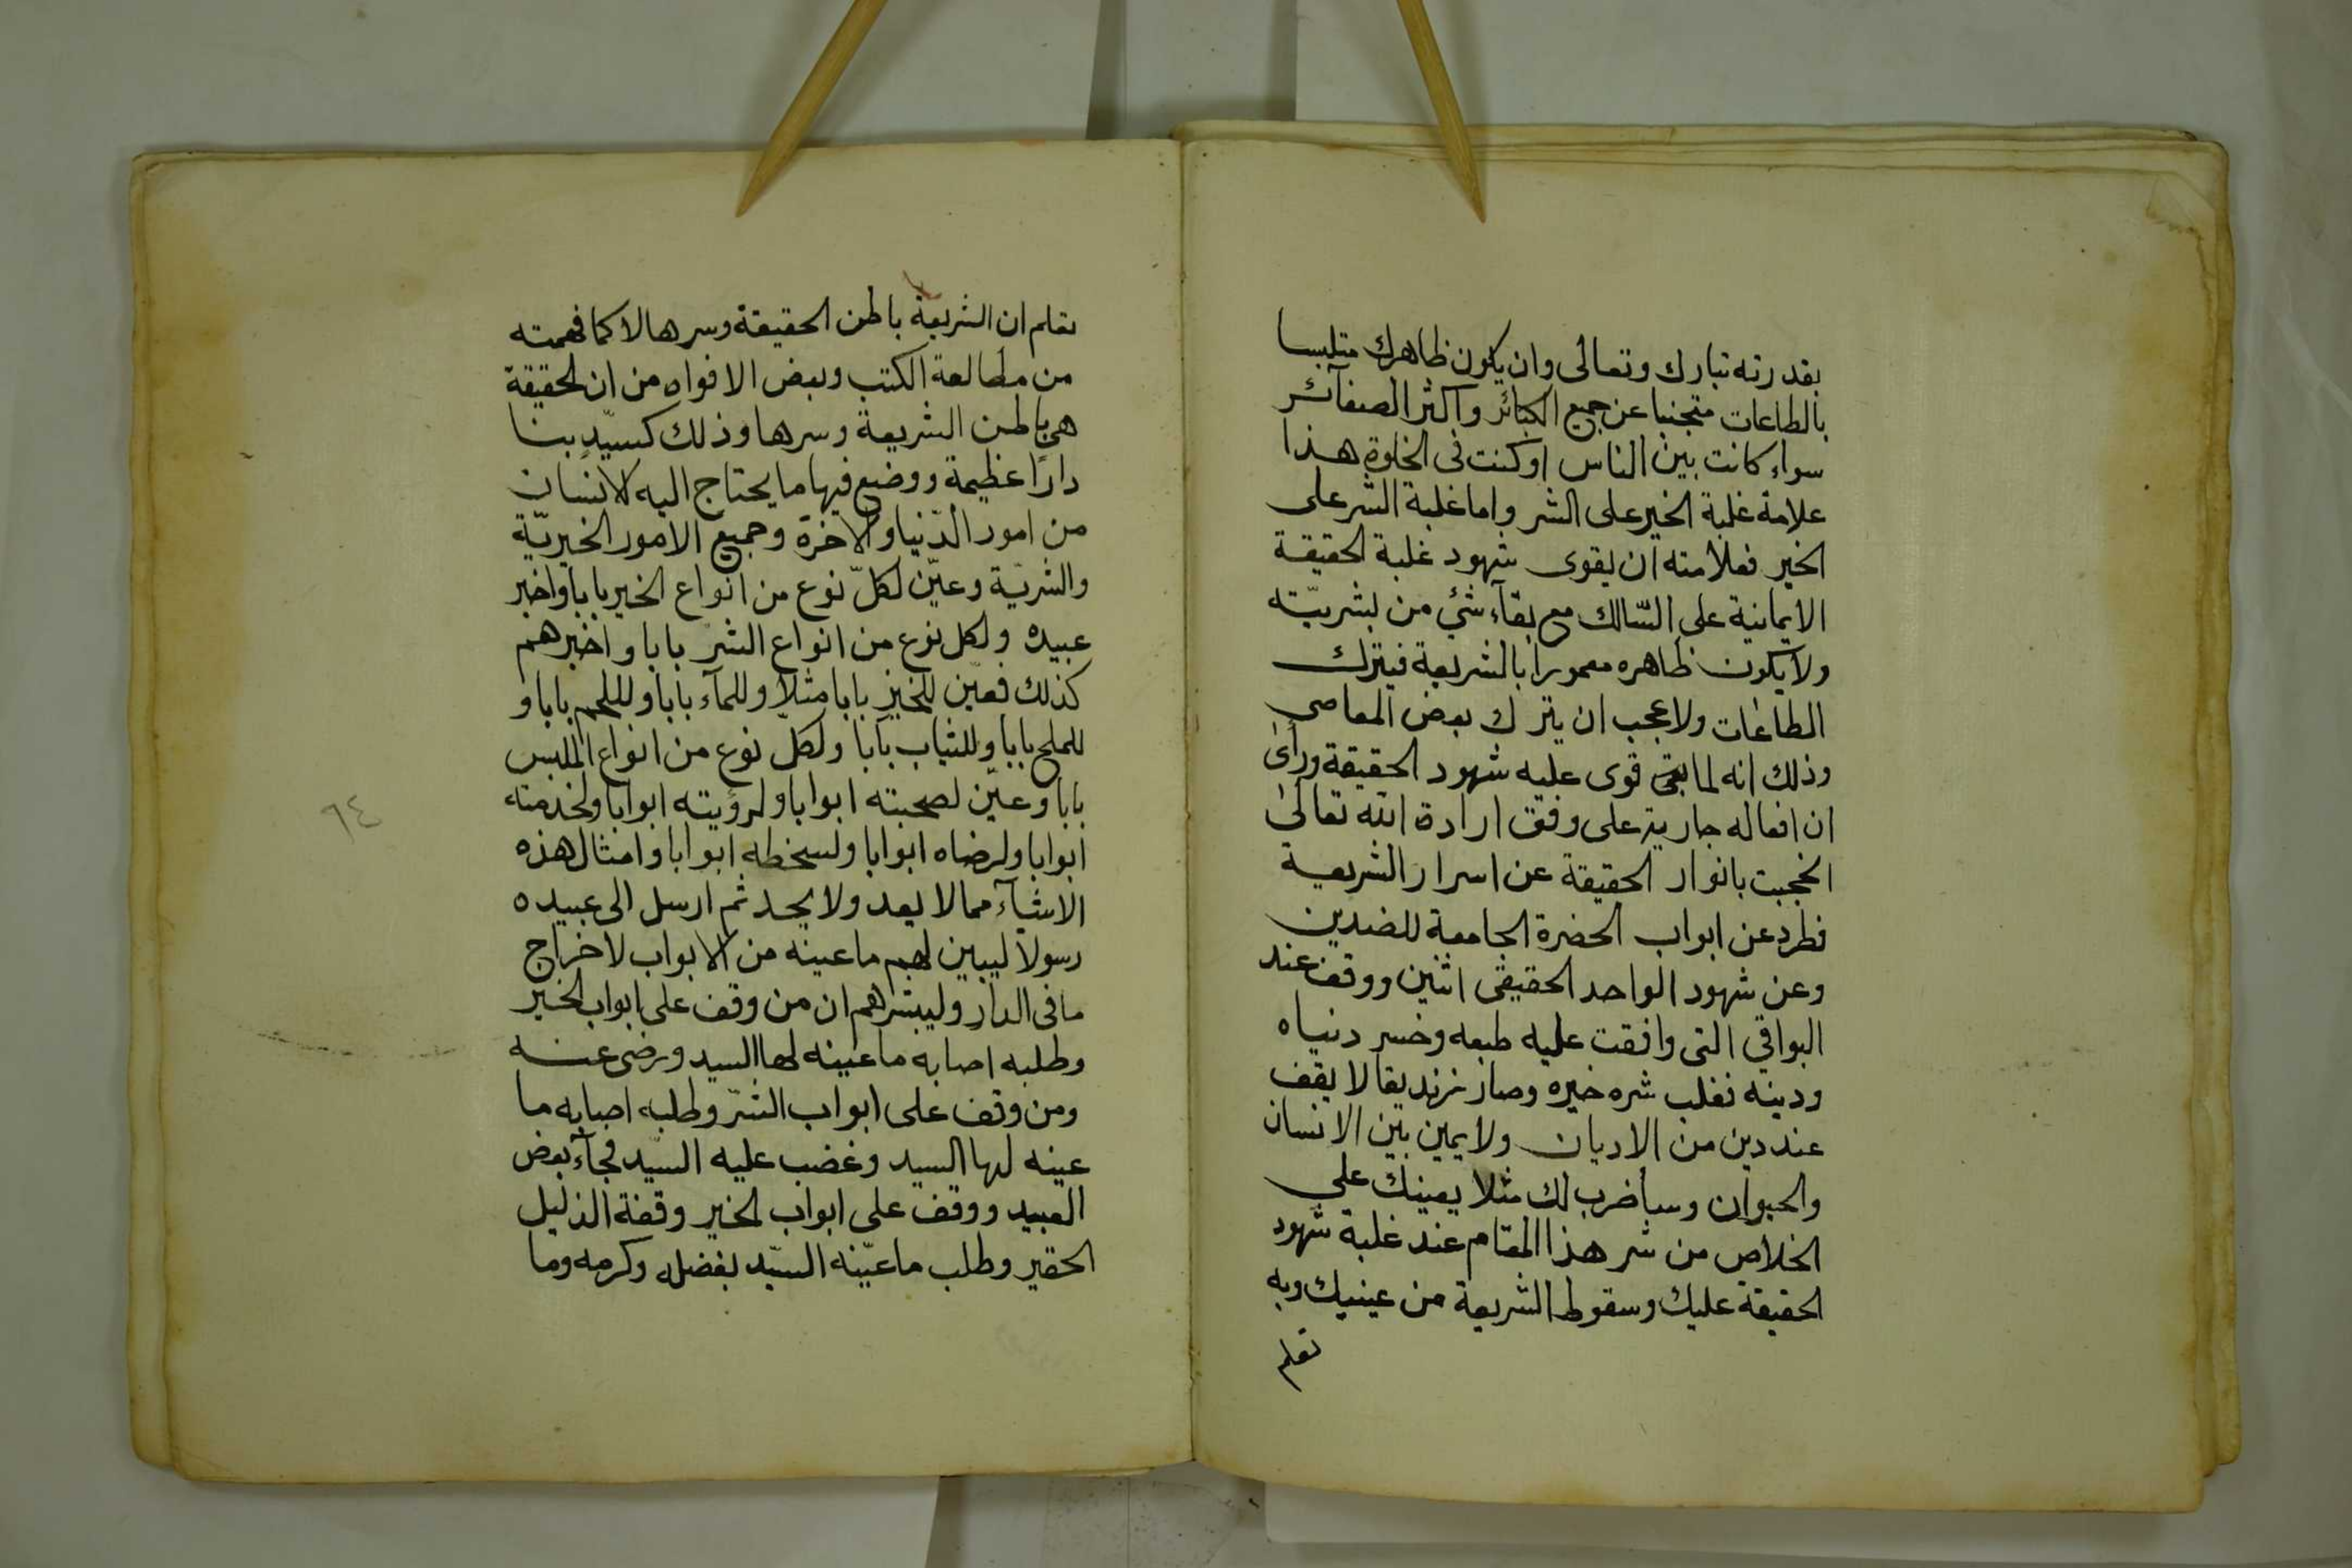 بقدرته تبارك وتعالى وان يكون ظاهرك متلبسا
بالطاعات متجنبا عن جميع الكبائر واكثر الصغآئر
سواء كانت بين الناس او كنت فى الخلوة هذا
علامة غلبة الخير على الشر واما غلبة الشر على
الخير فعلامته ان يقوى شهود غلبة الحقيقة
الايمانية على السّالك مع بقآء شئ من بشريّته
ولا يكون ظاهره معمورا بالشريعة فيترك
الطاعات ولا عجب ان يترك بعض المعاصى
وذلك انه لما قوى عليه شهود الحقيقة وراى
ان افعاله جارية على وفق ارادة الله تعالى
انحجبت بانوار الحقيقة عن اسرار الشريعية
فطرد عن ابواب الحضرة الجامعة للضدين
وعن شهود الواحد الحقيقى اثنين ووقف عند
البواقي التى وافقت عليه طبعه وخسر دنياه
ودينه فغلب شره خيره وصار زنديقا لا يقف
عند دين من الاديان ولا يميز بين الانسان
والحيوان وسأضرب لك مثلا يعينك على
الخلاص من شر هذا المقام عند غلبة شهود
الحقيقة عليك وسقوط الشريعة من عينيك وبه
تعلم
تعلم ان الشريعة باطن الحقيقة وسرها لا كما فهمته
من مطالعة الكتب وبعض الافواه من ان الحقيقة
هى باطن الشريعة وسرها وذلك كسيّد بنا
دارًا عظيمة ووضع فيها ما يحتاج اليه الانسان
من امور الدّنيا والاخرة وجميع الامور الخيريّة
والشريّة وعيّن لكلّ نوع من انواع الخير بابا واخبر
عبيده ولكل نوع من انواع الشر بابا واخبرهم
كذلك فعيّن للخبز بابا مثلا وللمآء بابا وللحم بابا و
للملح بابا وللثياب بابا ولكلّ نوع من انواع الملبس
بابا وعيّن لصحبته ابوابا ولرؤيته ابوابا ولخدمته
ابوابا ولرضاه ابوابا ولسخطه ابوابا وامثال هذه
الاشيآء مما لا يعد ولا يحد ثم ارسل الى عبيده
رسولا ليبين لهم ما عينه من الابواب لاخراج
ما فى الدار وليبشرهم ان من وقف على ابواب الخير
وطلبه اصابه ما عينه لها السيد ورضى عنه
ومن وقف على ابواب الشرّ وطلبه اصابه ما
عينه لها السيد وغضب عليه السّيد فجآء بعض
العبيد ووقف على ابواب الخير وقفة الذليل
الحقير وطلب ما عيّنه السيّد بفضله وكرمه وما
٦٤